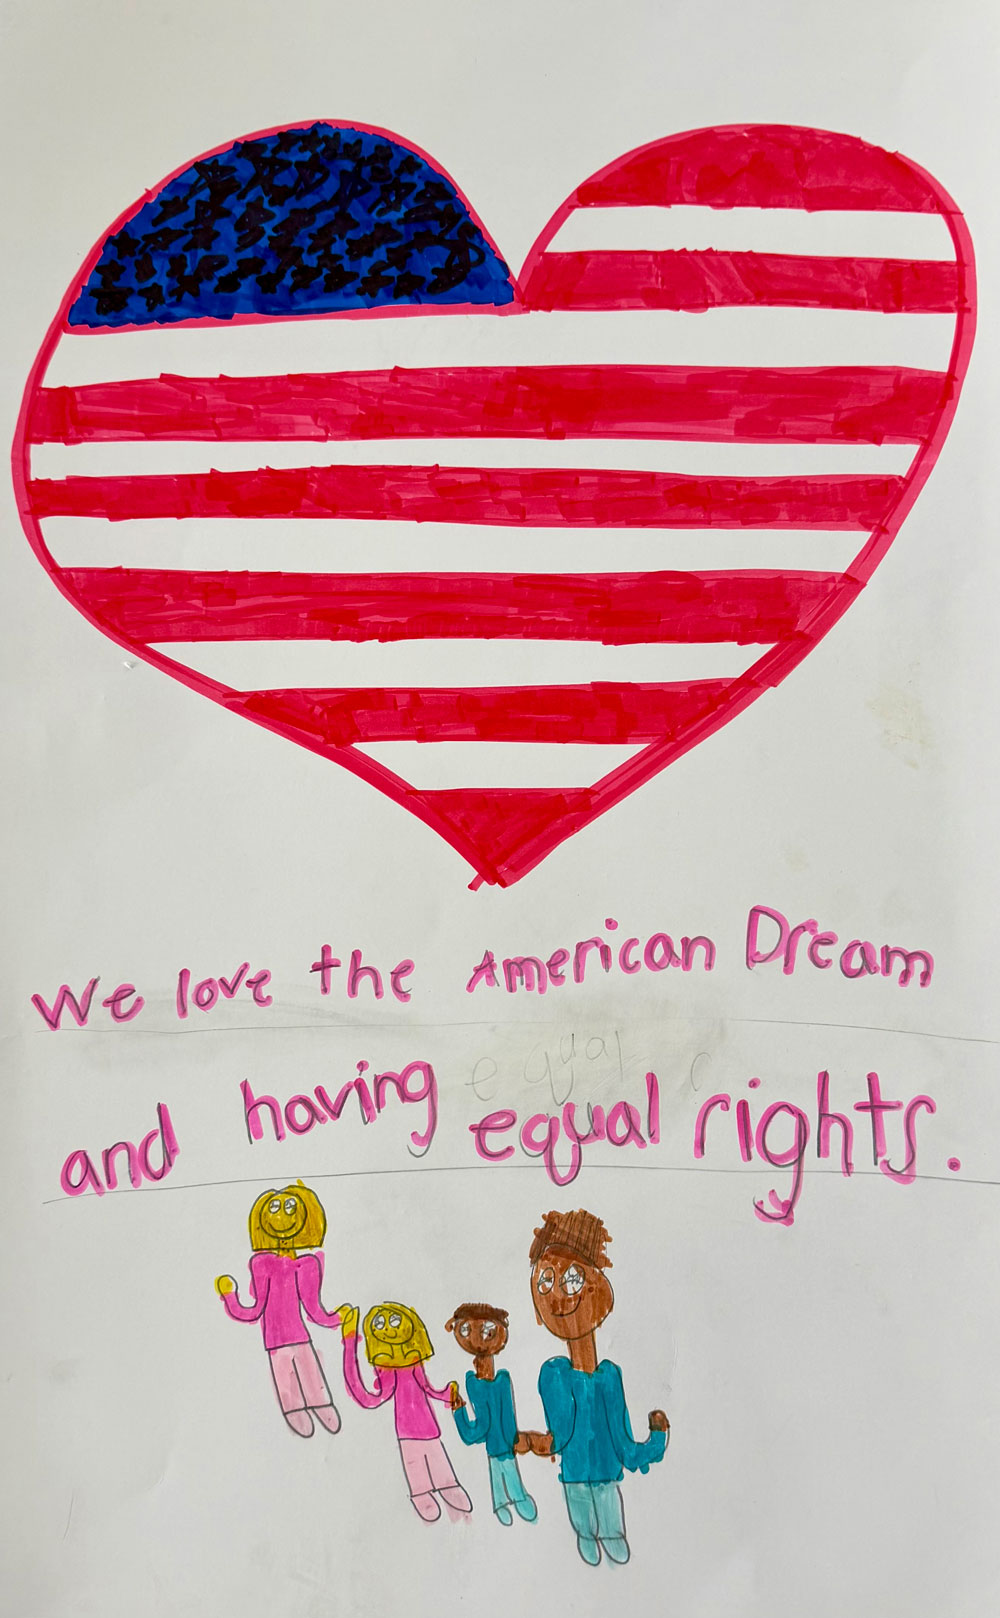 We love the American Dream
equal
and having equal rights.